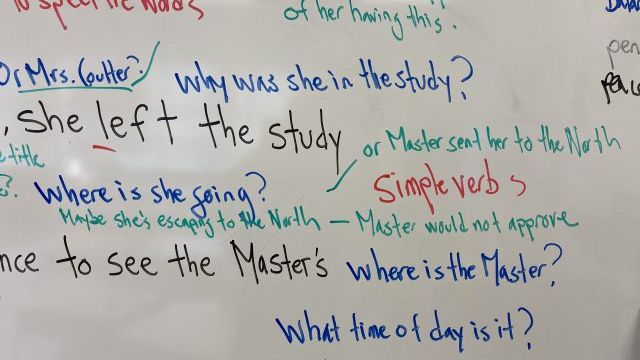 to specific words
of her having this?
Or Mrs. Coulter?
Why was she in the study?
, she left the study
or Master sent her to the North
e title
?. Where is she going?
Simple verbs
Maybe she's escaping to the North — Master would not approve
nce to see the Master's
Where is the Master?
What time of day is it?